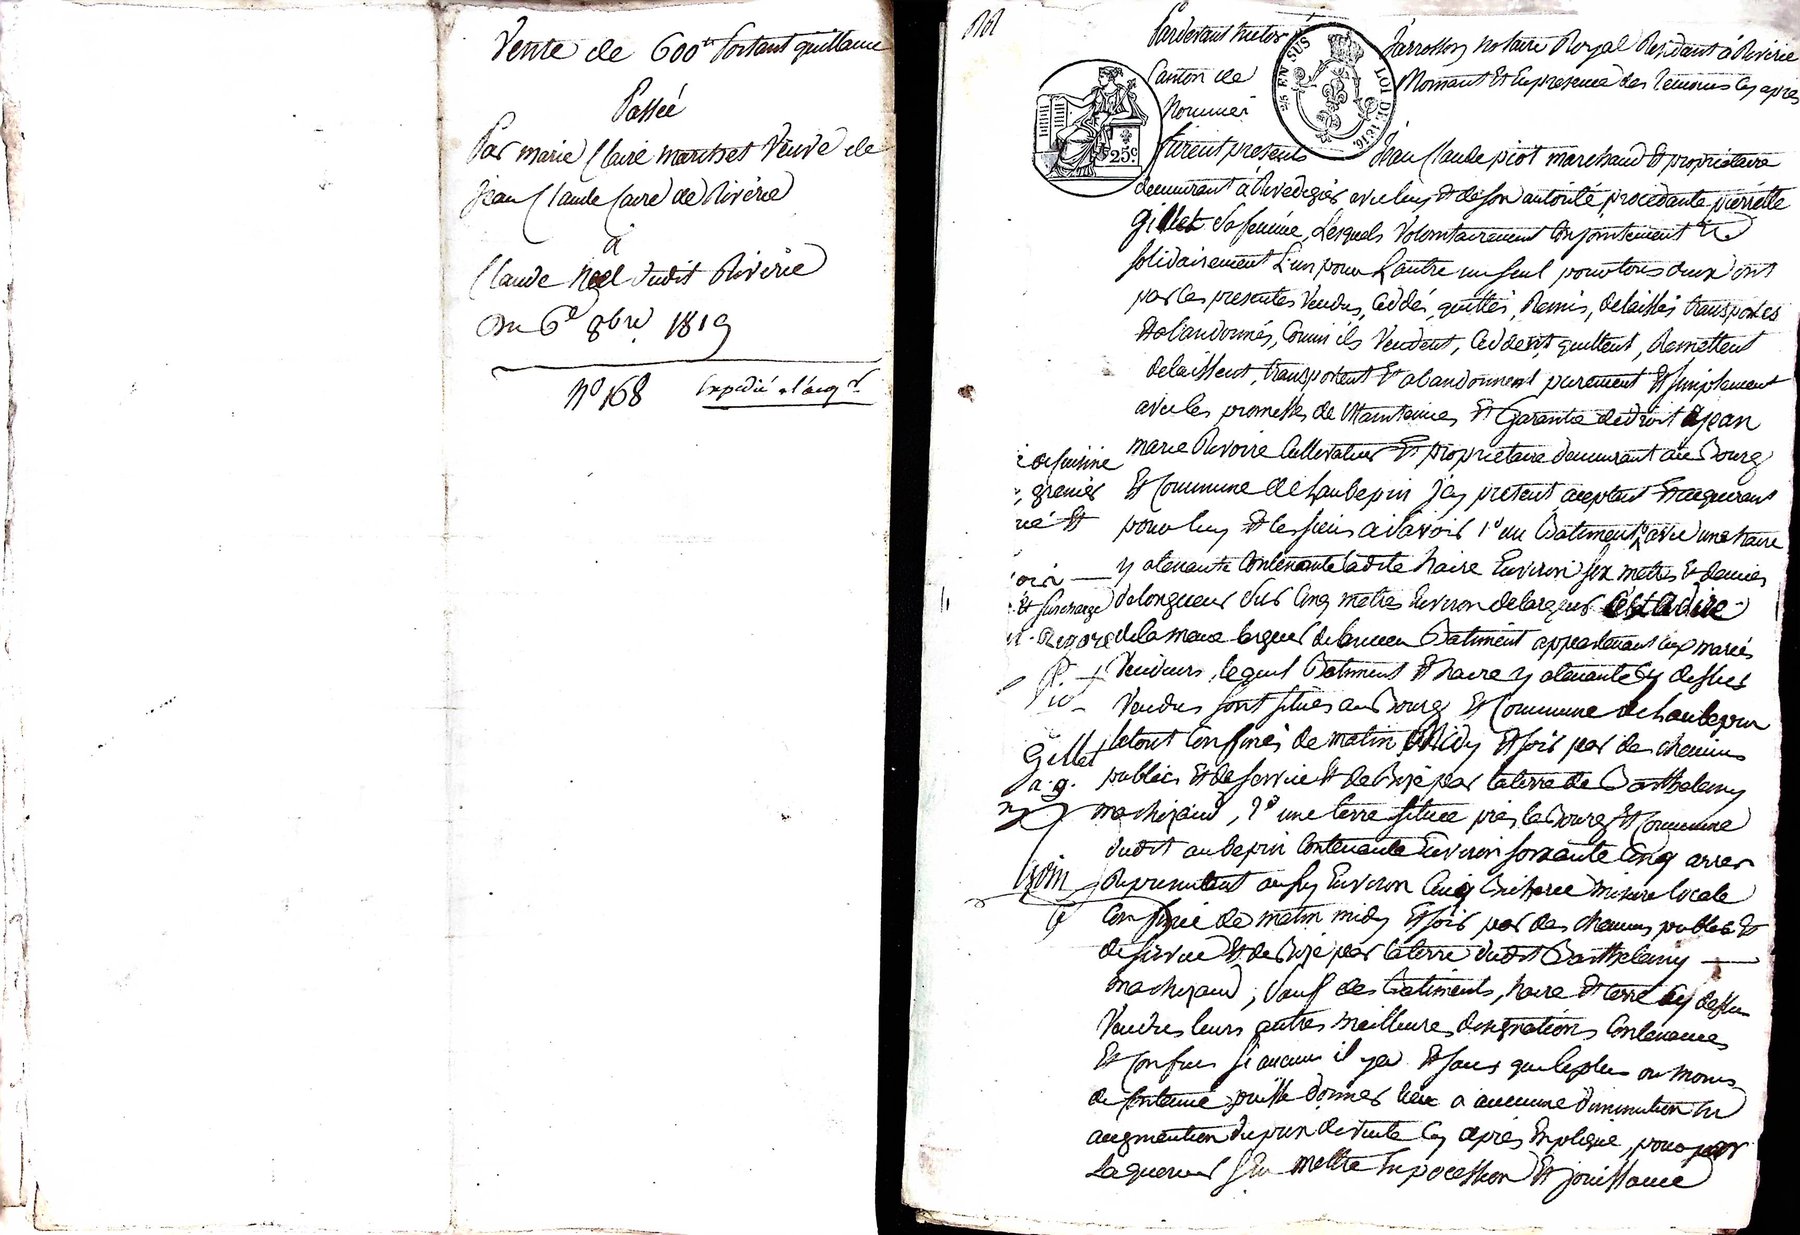 Vente de 600# portant quittance
Passée
Par marie Claire marthet Veuve de
Jean Claude Caire de Riverie
à
Claude Noel dudit Riverie
Du 6e 8bre 1819
N° 168 Expédié à l'acqr.
Pardevant
Jarrosson notaire Royal Résidant à Riverie
Canton de
Mornant Et En presence des temoins Cy après
Nommés
25 EN SUS LOI DE 1816
25c
furent presents Jean Claude piot marchand Et propriétaire
demeurant à Rivedegier avec luy Et de son autorité procedante pierrette
Gillet sa femme, Lesquels Volontairement Conjointement Et
solidairement L'un pour L'autre un seul pour tous deux ont
par Ces presentes Vendus, Ceddés, quittés, Remis, delaissés transportés
Et abandonnés, Comme ils Vendent, Ceddent, quittent, Remettent
delaissent, transportent Et abandonnent purement Et simplement
avec les promesses de Maintenue Et Garantie de droit à jean
marie Rivoire Cultivateur Et propriétaire demeurant au Bourg
Et Commune de Laubepin Icy present, acceptant Et acquerant
pour luy Et les siens à Savoir 1° un Batiment avec une haire
y atenante Contenante ladite haire Environ six metres Et demies
de longueur sur Cinq metres Environ de largeur C'est à dire
de la meme largeur Batiment appartenant aux mariés
Vendeurs, lequel Batiment Et haire y atenante Cy dessus
Vendus sont situés au Bourg Et Commune de Laubepin
le tout Confinés de matin Midy Et soir par des chemins
publics Et de service Et de Bize par la terre de Barthelemy
2° une terre située près le Bourg Et Commune
dudit aubepin Contenante Environ soixante Cinq arres
Environ Cinq Bicherée mesure locale
Confinée de matin midy Et soir par des chemins publics Et
de service Et de Bize par la terre dudit Barthelemy
sauf des Batiments, haire Et terre Cy dessus
Vendus leurs autres meilleures designations Contenances
Et Confins si aucuns il y a Et sans que le plus ou moins
de Contenue puisse donner lieu à aucunne diminution ni
augmention du prix de vente Cy après Expliqué, pour par
Laquereur s'En mettre En pocession Et jouissance
de cuisine
grenier
Et
Et surcharge
Piot
Gillet